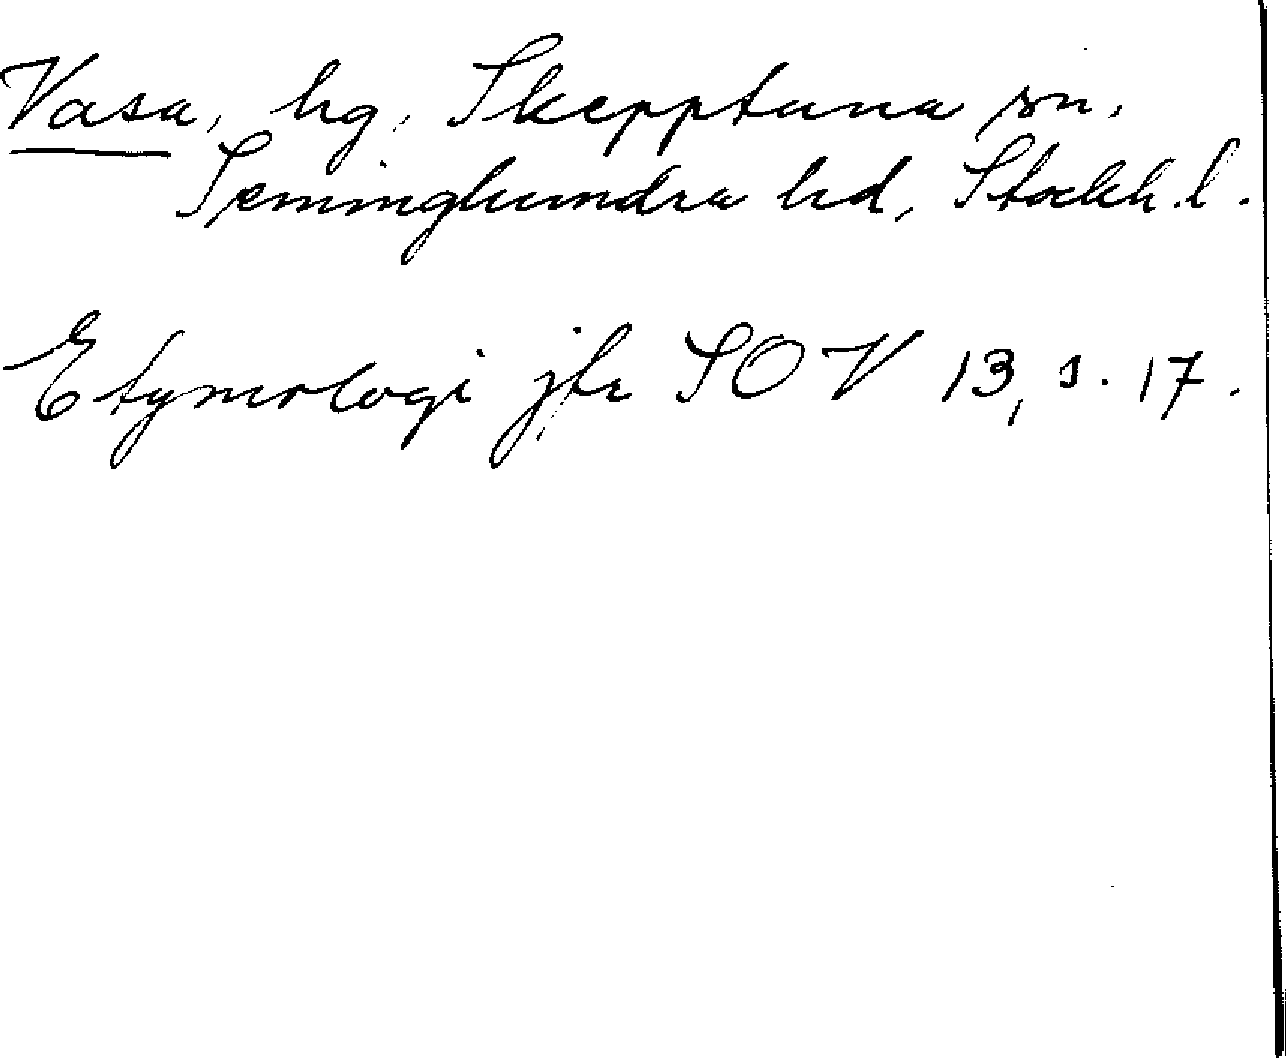 Vasa, hg, Skepptuna sn.
Seminghundra hd, Stockh.l.
Etymologi jfr SOV 13, s. 17.